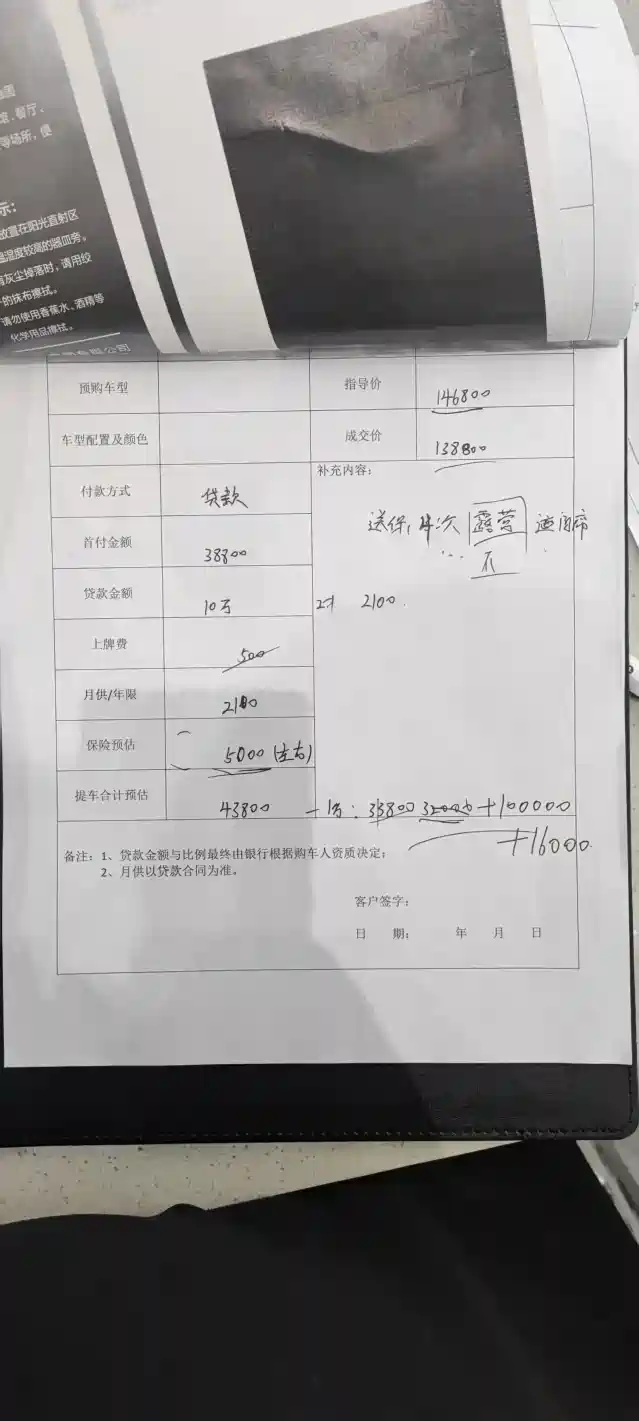 馆、餐厅、
等场所，使
示:
放置在阳光直射区
温湿度较高的器皿旁。
有灰尘掉落时，请用绞
的抹布擦拭。
请勿使用香蕉水、酒精等
化学用品擦拭。
预购车型 指导价 146800
车型配置及颜色 成交价 138800
付款方式 贷款 补充内容:
露营
首付金额 38800
贷款金额 10万 2100
上牌费 500
月供/年限 2100
保险预估 5000 (左右)
提车合计预估 43800 33800 32000 +100000
+16000
备注：1、贷款金额与比例最终由银行根据购车人资质决定；
2、月供以贷款合同为准。
客户签字：
日 期： 年 月 日